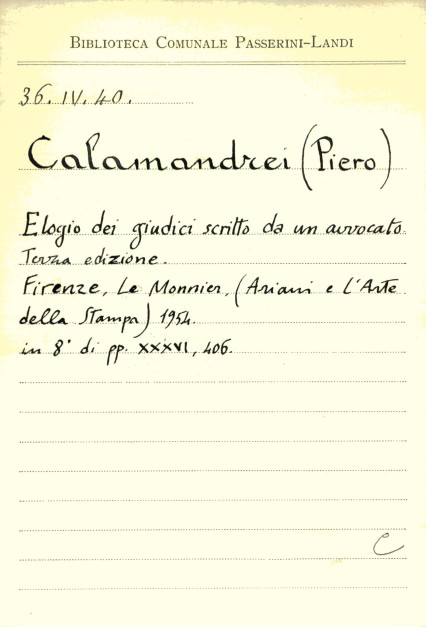 BIBLIOTECA COMUNALE PASSERINI-LANDI
36.IV.40.
Calamandrei (Piero)
Elogio dei giudici scritto da un avvocato.
Terza edizione.
Firenze, Le Monnier, (Ariani e L'Arte
della Stampa) 1954.
in 8° di pp. XXXVI, 406.
C